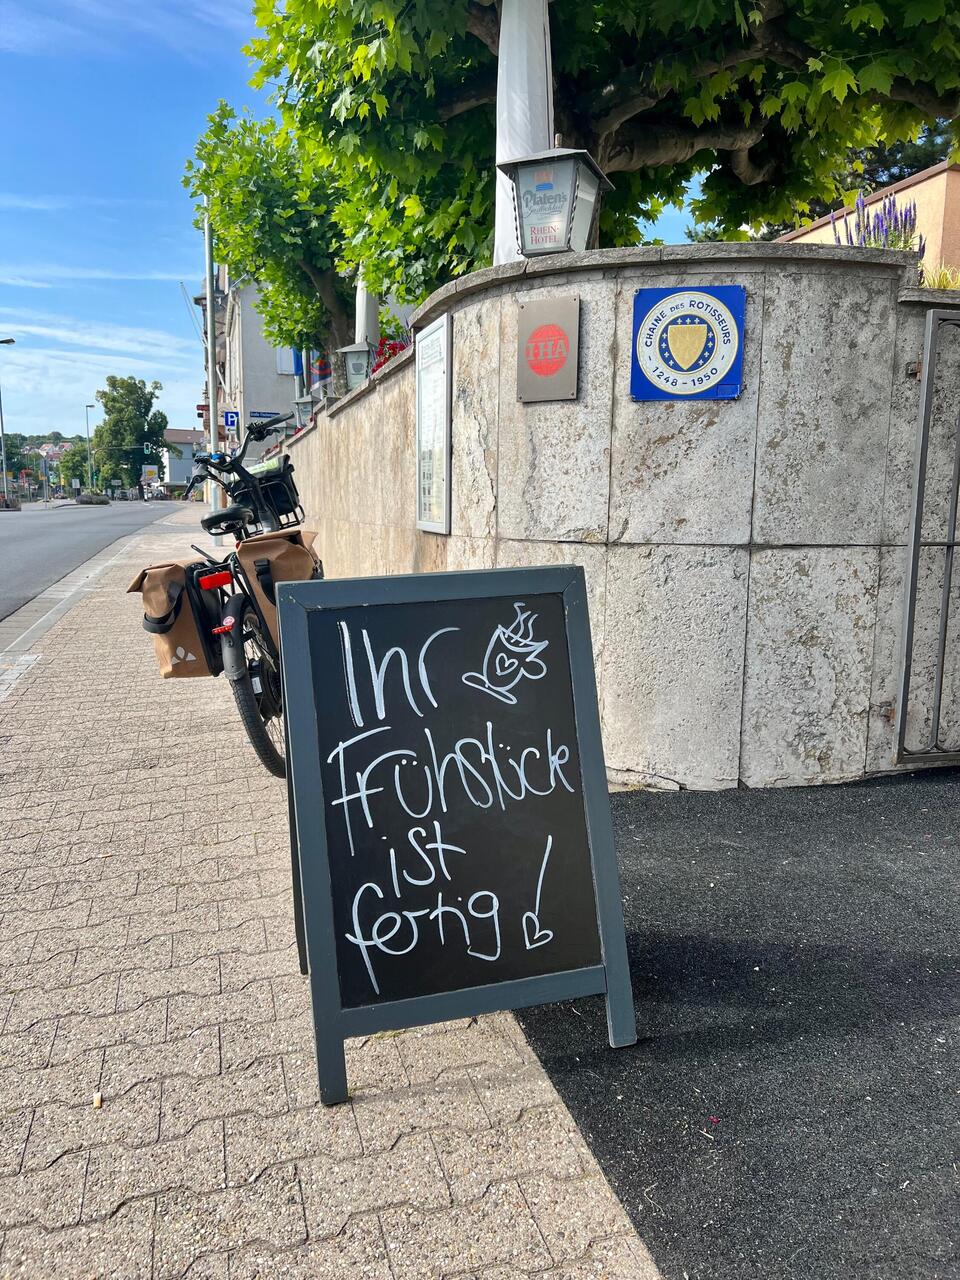 Platen's
RHEIN-
HOTEL
IHA
CHAINE DES ROTISSEURS
1248 - 1950
P
Ihr
Frühstück
ist
fertig!